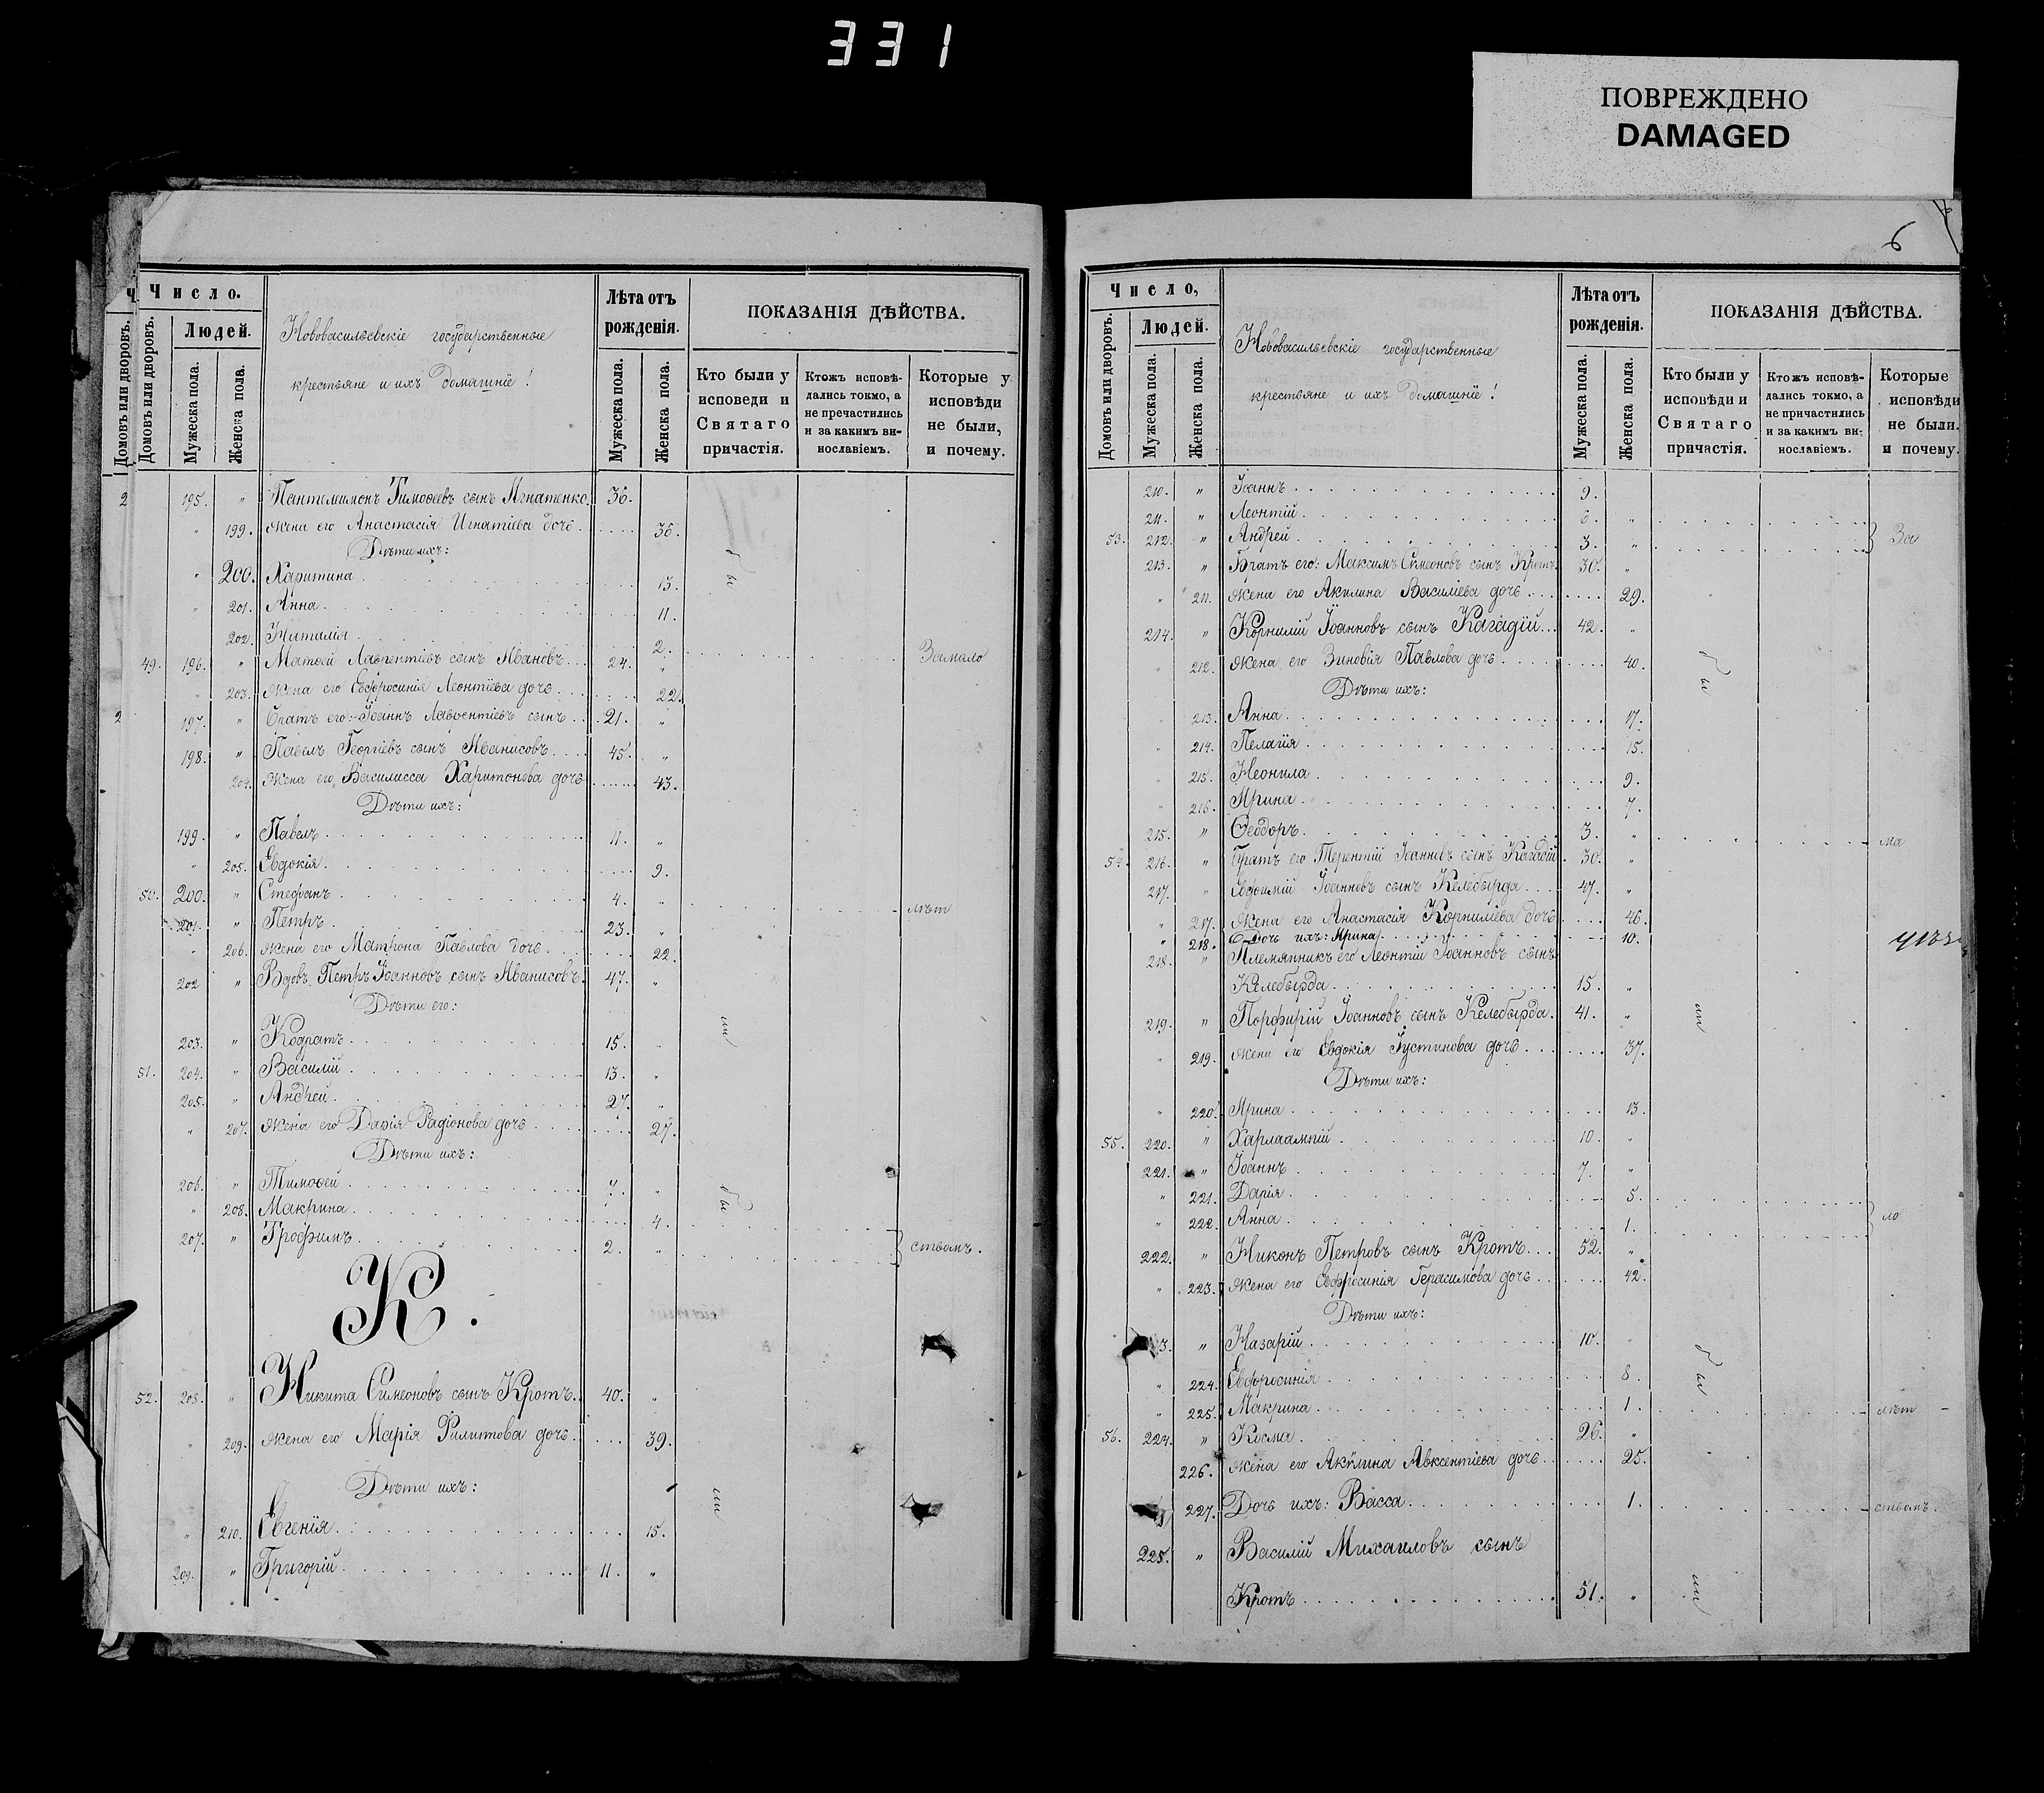 331
ПОВРЕЖДЕНО
DAMAGED
Число.
Людей.
Домовъ или дворовъ.
Домовъ или дворовъ.
Мужеска пола.
Женска пола.
Нововасильевскіе государственные
крестьяне и ихъ домашніе!
Лѣта отъ
рожденія.
Мужеска пола.
Женска пола.
ПОКАЗАНІЯ ДѢЙСТВА.
Кто были у
исповеди и
Святаго
причастія.
Ктожъ исповѣ-
дались токмо, а
не пречастились
и за какимъ ви-
нославіемъ.
Которые у
исповѣди
не были,
и почему.
2 195. " Пантелимонъ Тимоѳеевъ сынъ Игнатенко. 36.
" 199. Жена его Анастасія Игнатіева дочь. 36.
Дѣти ихъ:
" 200. Харитина. 13. бы
" 201. Анна. 11.
202. Наталія. 2.
49. 196. " Матѳей Лаврентіевъ сынъ Ивановъ. 24. " Замало
" 203. Жена его Евфросинія Леонтіева дочь. 22.
2 197. " Братъ его: Іоаннъ Лаврентіевъ сынъ. 21. "
198. " Павелъ Георгіевъ сынъ Иванисовъ. 45. "
204. Жена его Василисса Харитонова дочь. 43.
Дѣти ихъ:
199. " Павелъ. 11. "
" 205. Евдокія. 9.
50. 200. " Стефанъ. 4. " лѣт
201. " Петръ. 23. "
" 206. Жена его Матрона Павлова дочь. 22.
202 " Вдовъ Петръ Іоанновъ сынъ Иванисовъ. 47. "
Дѣти его:
ли
203. " Кодратъ. 15. "
51. 204. " Василій. 13. "
205. " Андрей. 27. "
" 207. Жена его Дарія Радіонова дочь. 27.
Дѣти ихъ:
206. " Тимоѳей. 7. " бы
" 208. Макрина. 4.
207. " Трофимъ. 2. " ствомъ.
К.
52. 208. " Никита Симеоновъ сынъ Кротъ. 40. "
" 209. Жена его Марія Филиппова дочь. 39.
Дѣти ихъ:
ли
" 210. Евгенія. 15.
209. " Григорій. 11. "
6
Число,
Людей.
Домовъ или дворовъ.
Мужеска пола.
Женска пола.
Нововасильевскіе государственные
крестьяне и ихъ домашніе!
Лѣта отъ
рожденія.
Мужеска пола.
Женска пола.
ПОКАЗАНІЯ ДѢЙСТВА.
Кто были у
исповѣди и
Святаго
причастія.
Кто жъ исповѣ-
дались токмо, а
не причастились
и за какимъ ви-
нославіемъ.
Которые
исповѣди
не были.
и почему.
210. " Іоаннъ. 9.
211. " Леонтій. 6. "
53. 212. " Андрей. 3. " За
213. " Братъ его: Максимъ Симеоновъ сынъ Кротъ. 30. "
" 211. Жена его Акилина Василіева дочь. 29.
214. " Корнилій Іоанновъ сынъ Кагадій. 42. "
" 212. Жена его Зиновія Павлова дочь. 40. бы
Дѣти ихъ:
" 213. Анна. 17.
" 214. Пелагія. 15.
215. Неонила. 9.
" 216. Ирина. 7.
215. " Ѳеодоръ. 3. " ма
54. 216. " Братъ его Терентій Іоанновъ сынъ Кагадій. 30. "
217. " Евфимій Іоанновъ сынъ Келебырда. 47. "
" 217. Жена его Анастасія Корниліева дочь. 46.
" 218. Дочь ихъ: Ирина. 10.
218. " Племянникъ его Леонтій Іоанновъ сынъ
Келебырда. 15. "
219. " Порфирій Іоанновъ сынъ Келебырда. 41. " ли
" 219. Жена его Евдокія Іустинова дочь. 37.
Дѣти ихъ:
" 220. Ирина. 13.
55. 220. " Харлаампій. 10. "
221. " Іоаннъ. 7. "
" 221. Дарія. 5.
" 222. Анна. 1. ло
222. " Никонъ Петровъ сынъ Кротъ. 52. "
" 223. Жена его Евфросинія Герасимова дочь. 42.
Дѣти ихъ:
3. " Назарій. 10. " бы
" 224. Евфросинія. 8.
" 225. Макрина. 1. лѣт
56. 224. " Косма. 26. "
226. Жена его Акилина Авксентіева дочь. 25.
227. Дочь ихъ: Васса. 1. ствомъ.
225. " Василій Михаиловъ сынъ
Кротъ. 51. " ли